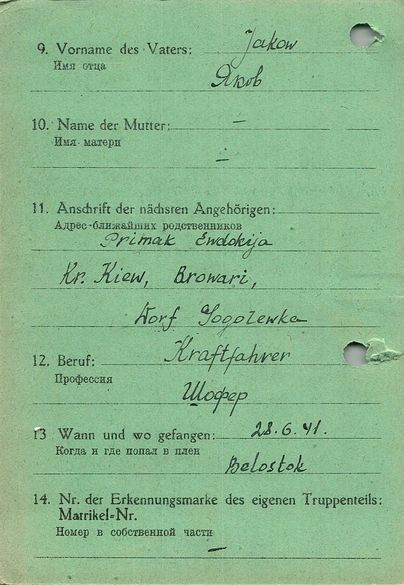 9. Vorname des Vaters: Jakow
Имя отца
Яков
10. Name der Mutter: —
Имя матери
—
11. Anschrift der nächsten Angehörigen:
Адрес ближайших родственников
Primak Ewdokija
Kr. Kiew, Browari,
Dorf Gogolewka
12. Beruf: Kraftfahrer
Профессия
Шофер
13 Wann und wo gefangen: 28.6.41.
Когда и где попал в плен
Belostok
14. Nr. der Erkennungsmarke des eigenen Truppenteils:
Matrikel-Nr.
Номер в собственной части
—